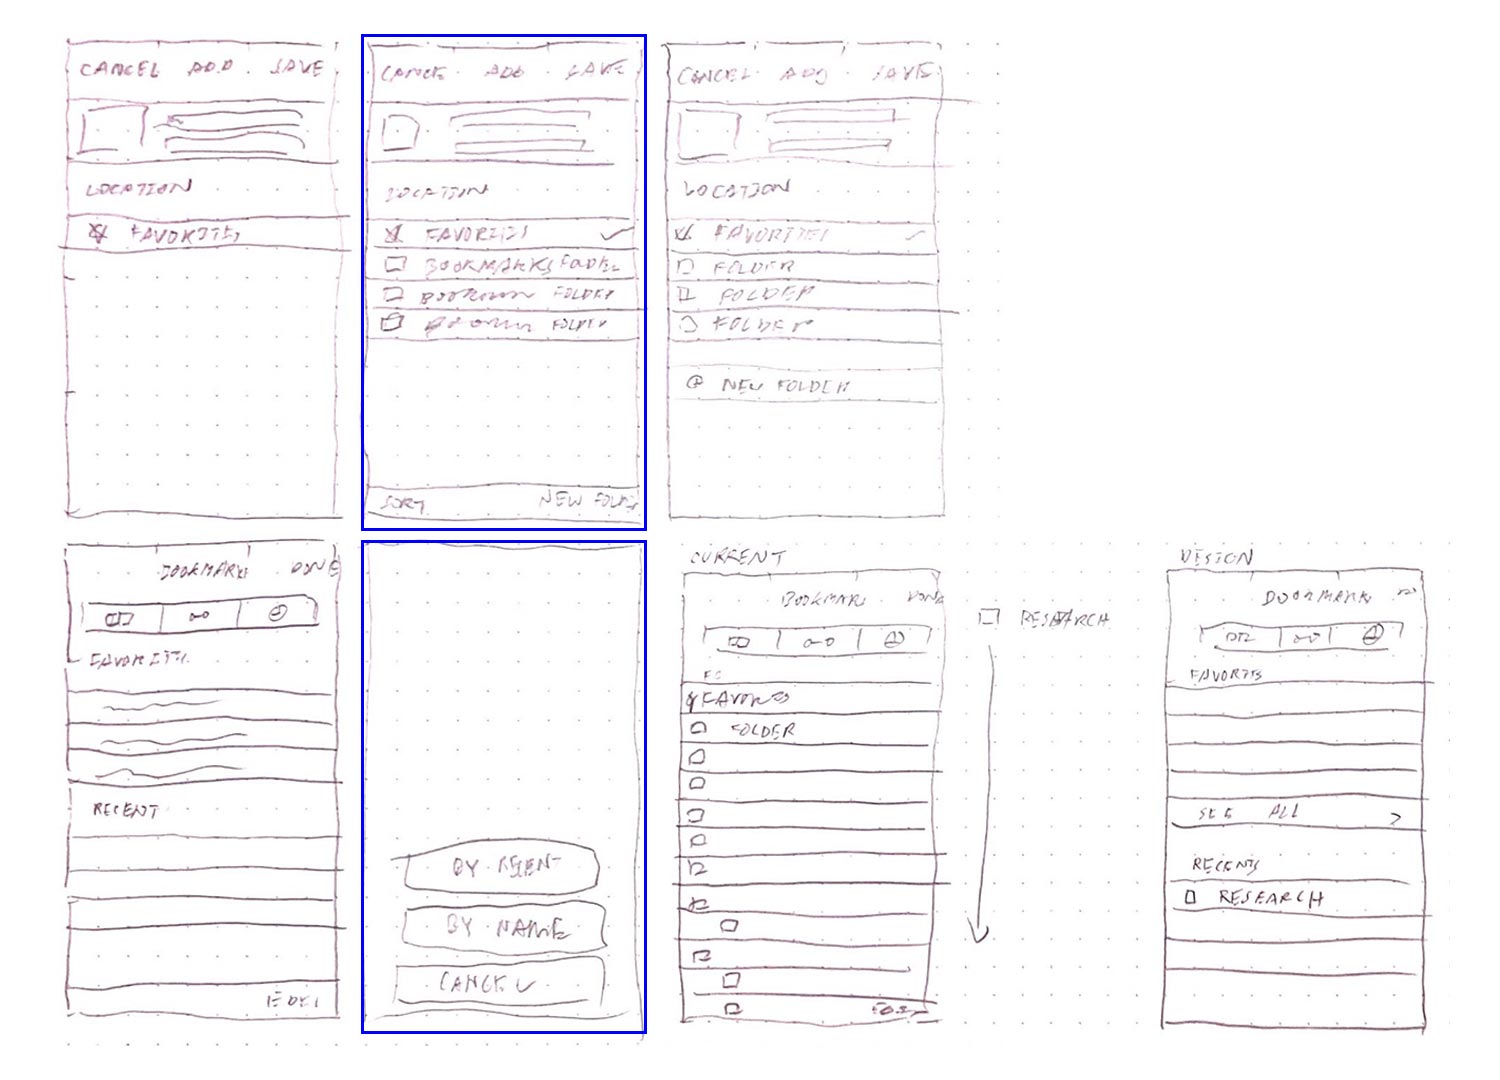 CANCEL ADD SAVE
LOCATION
FAVORITES
CANCEL ADD SAVE
LOCATION
FAVORITES
BOOKMARKS FOLDER
FOLDER
FOLDER
SORT NEW FOLDER
CANCEL ADD SAVE
LOCATION
FAVORITES
FOLDER
FOLDER
FOLDER
NEW FOLDER
BOOKMARK DONE
FAVORITES
RECENT
EDIT
BY RECENT
BY NAME
CANCEL
CURRENT
BOOKMARK DONE
FAVORITES
FOLDER
EDIT
RESEARCH
DESIGN
BOOKMARK
FAVORITES
SEE ALL >
RECENTS
RESEARCH